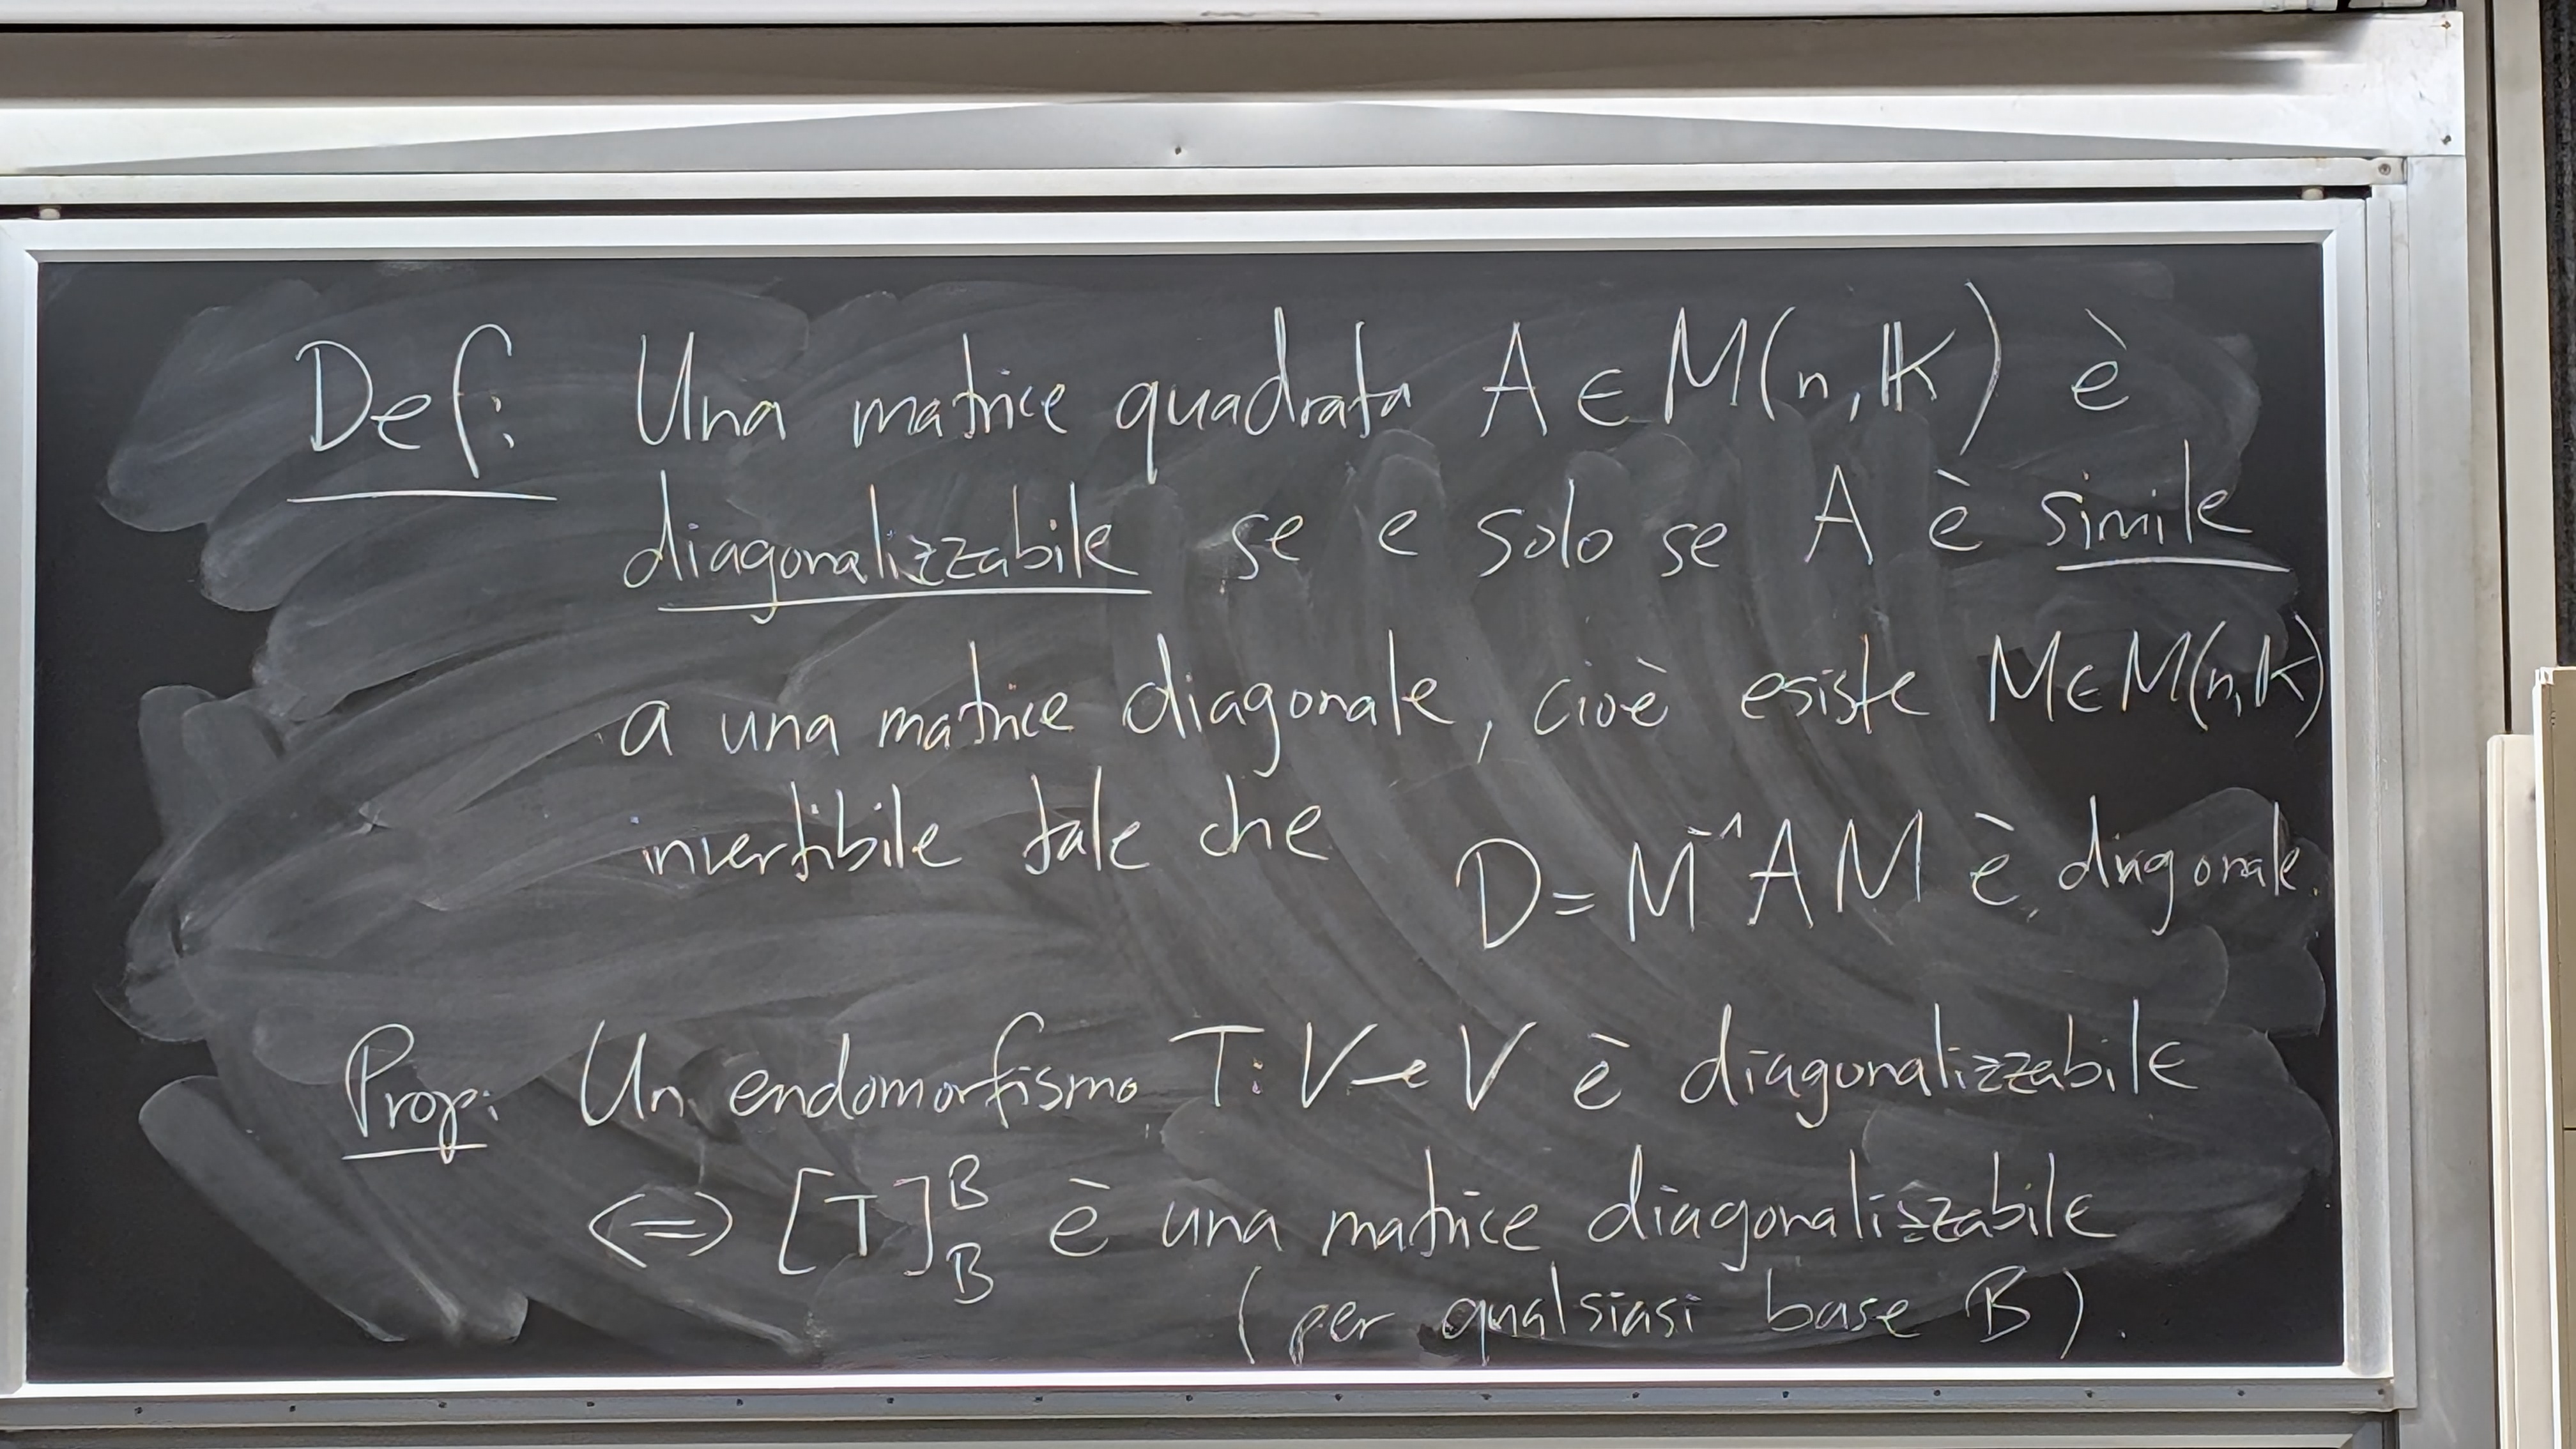 Def: Una matrice quadrata A ∈ M(n, 𝕂) è
diagonalizzabile se e solo se A è simile
a una matrice diagonale, cioè esiste M ∈ M(n, 𝕂)
invertibile tale che D = M⁻¹ A M è diagonale.
Prop: Un endomorfismo T: V → V è diagonalizzabile
⇔ [T]ᴮ_B è una matrice diagonalizzabile
(per qualsiasi base B).